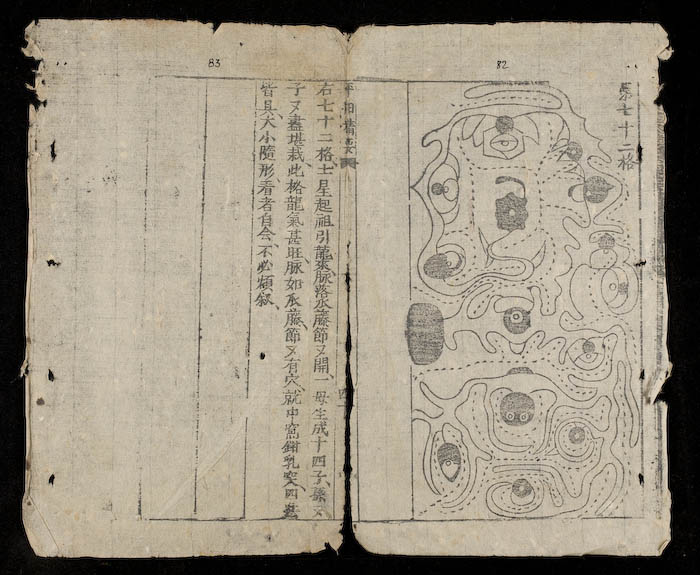 82
第七十二格
右七十二格士星起祖引龍來脉落瓜藤節又開一母生成十四子孫
子又盡堪栽此格龍氣甚旺脉如瓜藤節又有穴就中窩鉗乳突四
皆具大小隨形看者自会不必煩叙
83